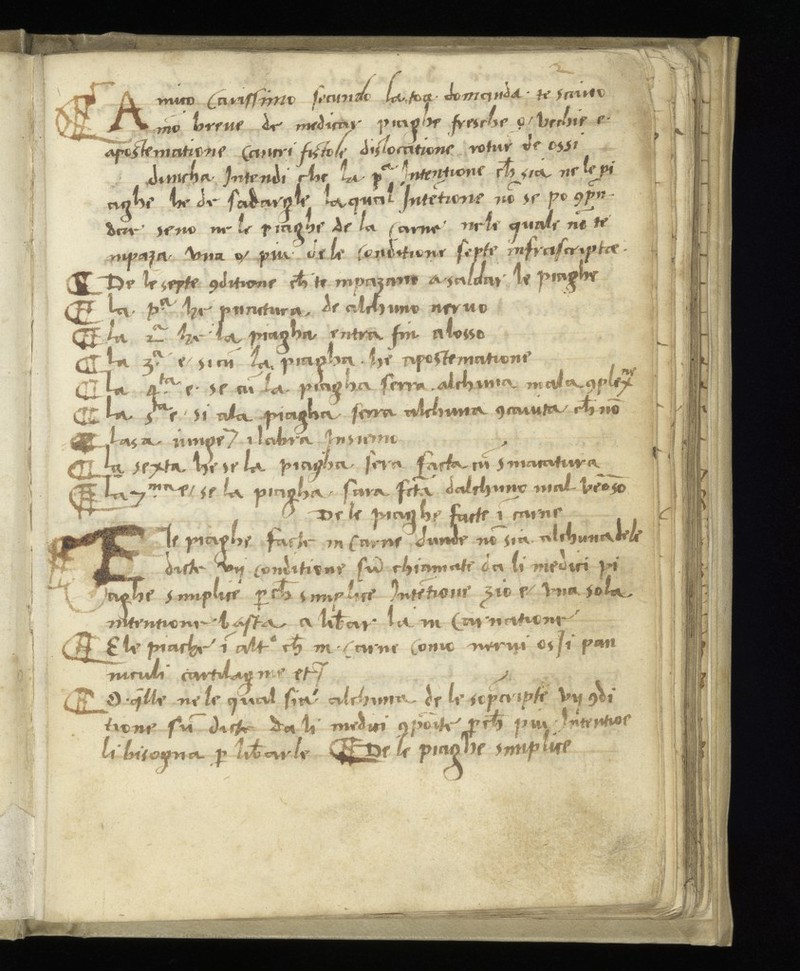 2
Amico Carissimo secundo la toa domanda te scrivo
mõ breve de medicar piaghe fresche o vechie e
apostematione Cancri fistole dislocatione roture de ossi
duncha Intendi che la pª Intentione ch̃ sia ne le pi
aghe he de saldargle la qual Intẽtione nõ se po ꝯpñ
der se no ne le piaghe de la Carne nele quale nõ te
impaza una o piu dele Conditione septe infrascripte
De le septe ꝯditione ch̃ te inpazano a saldar le piaghe
la pª he punctura de alchuno nervo
la 2ª he la piagha entra fin alosso
la 3ª e si cũ la piagha he apostematione
la 4ta e se cũ la piagha serra alchuna mala ꝯplexne
la 5ta e si ala piagha sera alchuna ꝯcavita ch̃ nõ
lasa iunge7 i labra Insiemo
la sexta he se la piagha sera facta cũ smacatura
la 7ma e se la piagha sara fcta dalchuno mal venoso
De le piaghe facte ĩ carne
E le piaghe facte in Carne dunde nõ sia alchuna dele
dicte vij conditione sũ chiamate da li medici pi
aghe simplice ꝑch̃ simplice Intẽtione zio e una sola
intentione basta a libar la in Carnatione
E le piache ĩ altº ch̃ in Carne Como nervi ossi pan
niculi cartilagine et7
O q̃lle nele qual sia alchuna de le sopscripte vij ꝯdi
tione sũ dicte da li medici ꝯposite ꝑch̃ piu Intentioe
li bisogna ꝑ libarle De le piaghe simplice